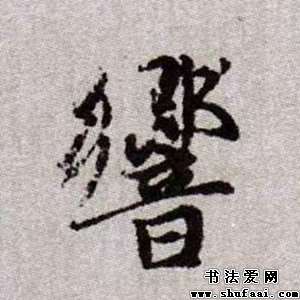 響
书法爱网
www.shufaai.com